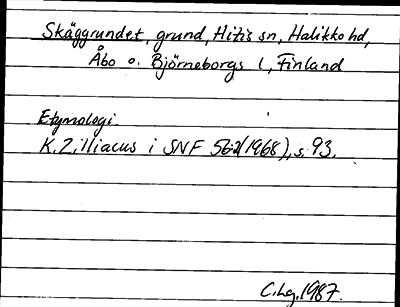 Skäggrundet, grund, Hitis sn, Halikko hd,
Åbo o. Björneborgs l, Finland
Etymologi
K. Zilliacus i SNF 56:2 (1968), s. 93.
C. Lg. 1987.